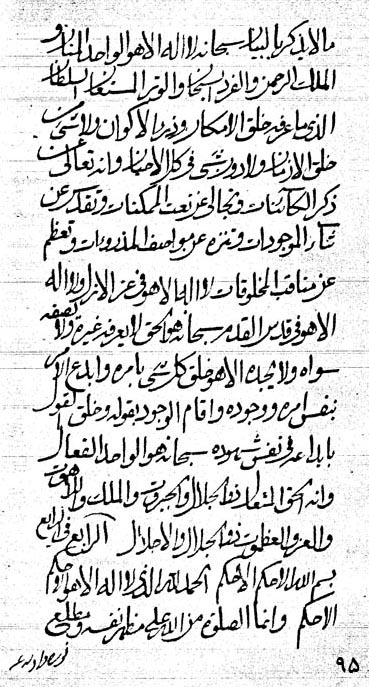 ما لا يذكر بالبيان سبحانه لا اله الا هو الواحد المنان و
الملك الرحمن والفرد السبحان والوتر المستعان السلطان
الذى ما عرفه خلق الامكان وذر الاكوان ولا شىء من
خلق الازمان ولا دون شىء فى كل الاحيان وانه تعالى عن
ذكر الكائنات وتجالى عن نعت الممكنات وتقدس عن
ثناء الموجودات وتنزه عن وصف المذروءات وتعظم
عن مناقب المخلوقات لا اله الا هو فى عز الازل ولا اله
الا هو فى قدس القدم سبحانه هو الحق لا يعرفه غيره ولا يصفه
سواه ولا يجده الا هو خلق كل شىء بامره وابدع الامر
بنفس امره ووجوده واقام الوجود بقوله وخلق القول
بابداعه فى نفس شهوده سبحانه هو الواحد الفعال
وانه الحق المتعال ذو الجلال والجبروت والملك واللاهوت
والعز والعظموت ذو الجلال والاجلال الرابع فى الرابع
بسم الله الاحكم الاحكم الحمد لله الذى لا اله الا هو الاحكم
الاحكم وانما الصلوة من الله على مظهر نفسه ومطلع
٩٥